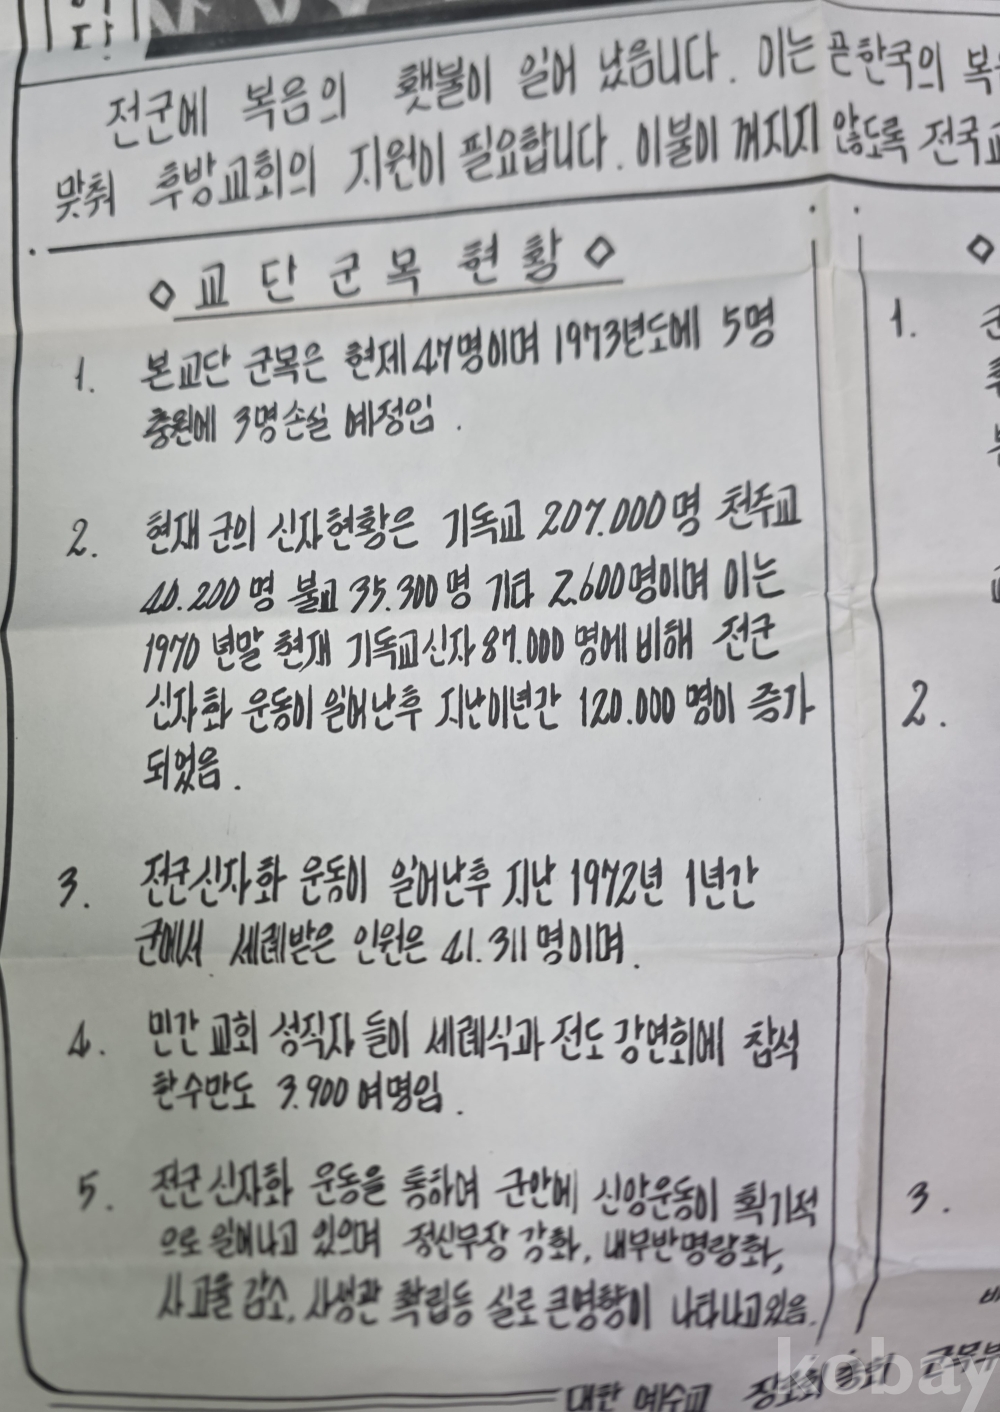 전군에 복음의 횃불이 일어 났읍니다. 이는 곧 한국의
맞춰 후방교회의 지원이 필요합니다. 이불이 꺼지지 않도록 전국교
◇ 교 단 군 목 현 황 ◇
1. 본교단 군목은 현제 47명이며 1973년도에 5명
충원에 3명손실 예정임.
2. 현재 군의 신자현황은 기독교 207.000명 천주교
40.200명 불교 35.300명 기타 2.600명이며 이는
1970 년말 현재 기독교신자 87.000 명에 비해 전군
신자화 운동이 일어난후 지난이년간 120.000 명이 증가
되었음.
3. 전군신자화 운동이 일어난후 지난 1972년 1년간
군에서 세례받은 인원은 41.311명이며.
4. 민간 교회 성직자 들이 세례식과 전도 강연회에 참석
한수만도 3.900 여명임.
5. 전군신자화 운동을 통하여 군안에 신앙운동이 획기적
으로 일어나고 있으며 정신무장 강화, 내무반명랑화,
사고율 감소, 사생관 확립등 실로 큰영향이 나타나고있음.
1.
2.
3.
대한 예수교 장로회 총회
kobay